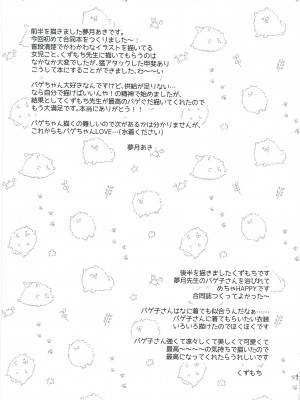 前半を描きました夢月あきです。
今回初めて合同本をつくりました～！
普段清楚でかわかわなイラストを描いてる
女児こと、くずもち先生に描いてもらうのは
なかなか大変でしたが、猛アタックした甲斐あり
こうして本にすることができました、わ～～い
バゲちゃん大好きなんですけど、供給が足りない…
なら自分で描けばいいんや！の精神で始めましたが、
結果としてくずもち先生が最高のバゲぐだ描いてくれたので
もう大満足です。本当にありがとう！！
バゲちゃん描くの難しいので次があるかは分かりませんが、
これからもバゲちゃんLOVE…（水着ください）
夢月あき
後半を描きましたくずもちです
夢月先生のバゲ子さんを浴びれて
めちゃHAPPYです
合同誌つくってよかった～
バゲ子さんはなに着ても似合うんだなぁ……
バゲ子さんに着てもらいたい衣装
いろいろ描けたのでほくほくです
バゲ子さん強くて凛々しくて美しくて可愛くて
最高～～～～の気持ちで描いたので
最高になってくれたらうれしいです
くずもち